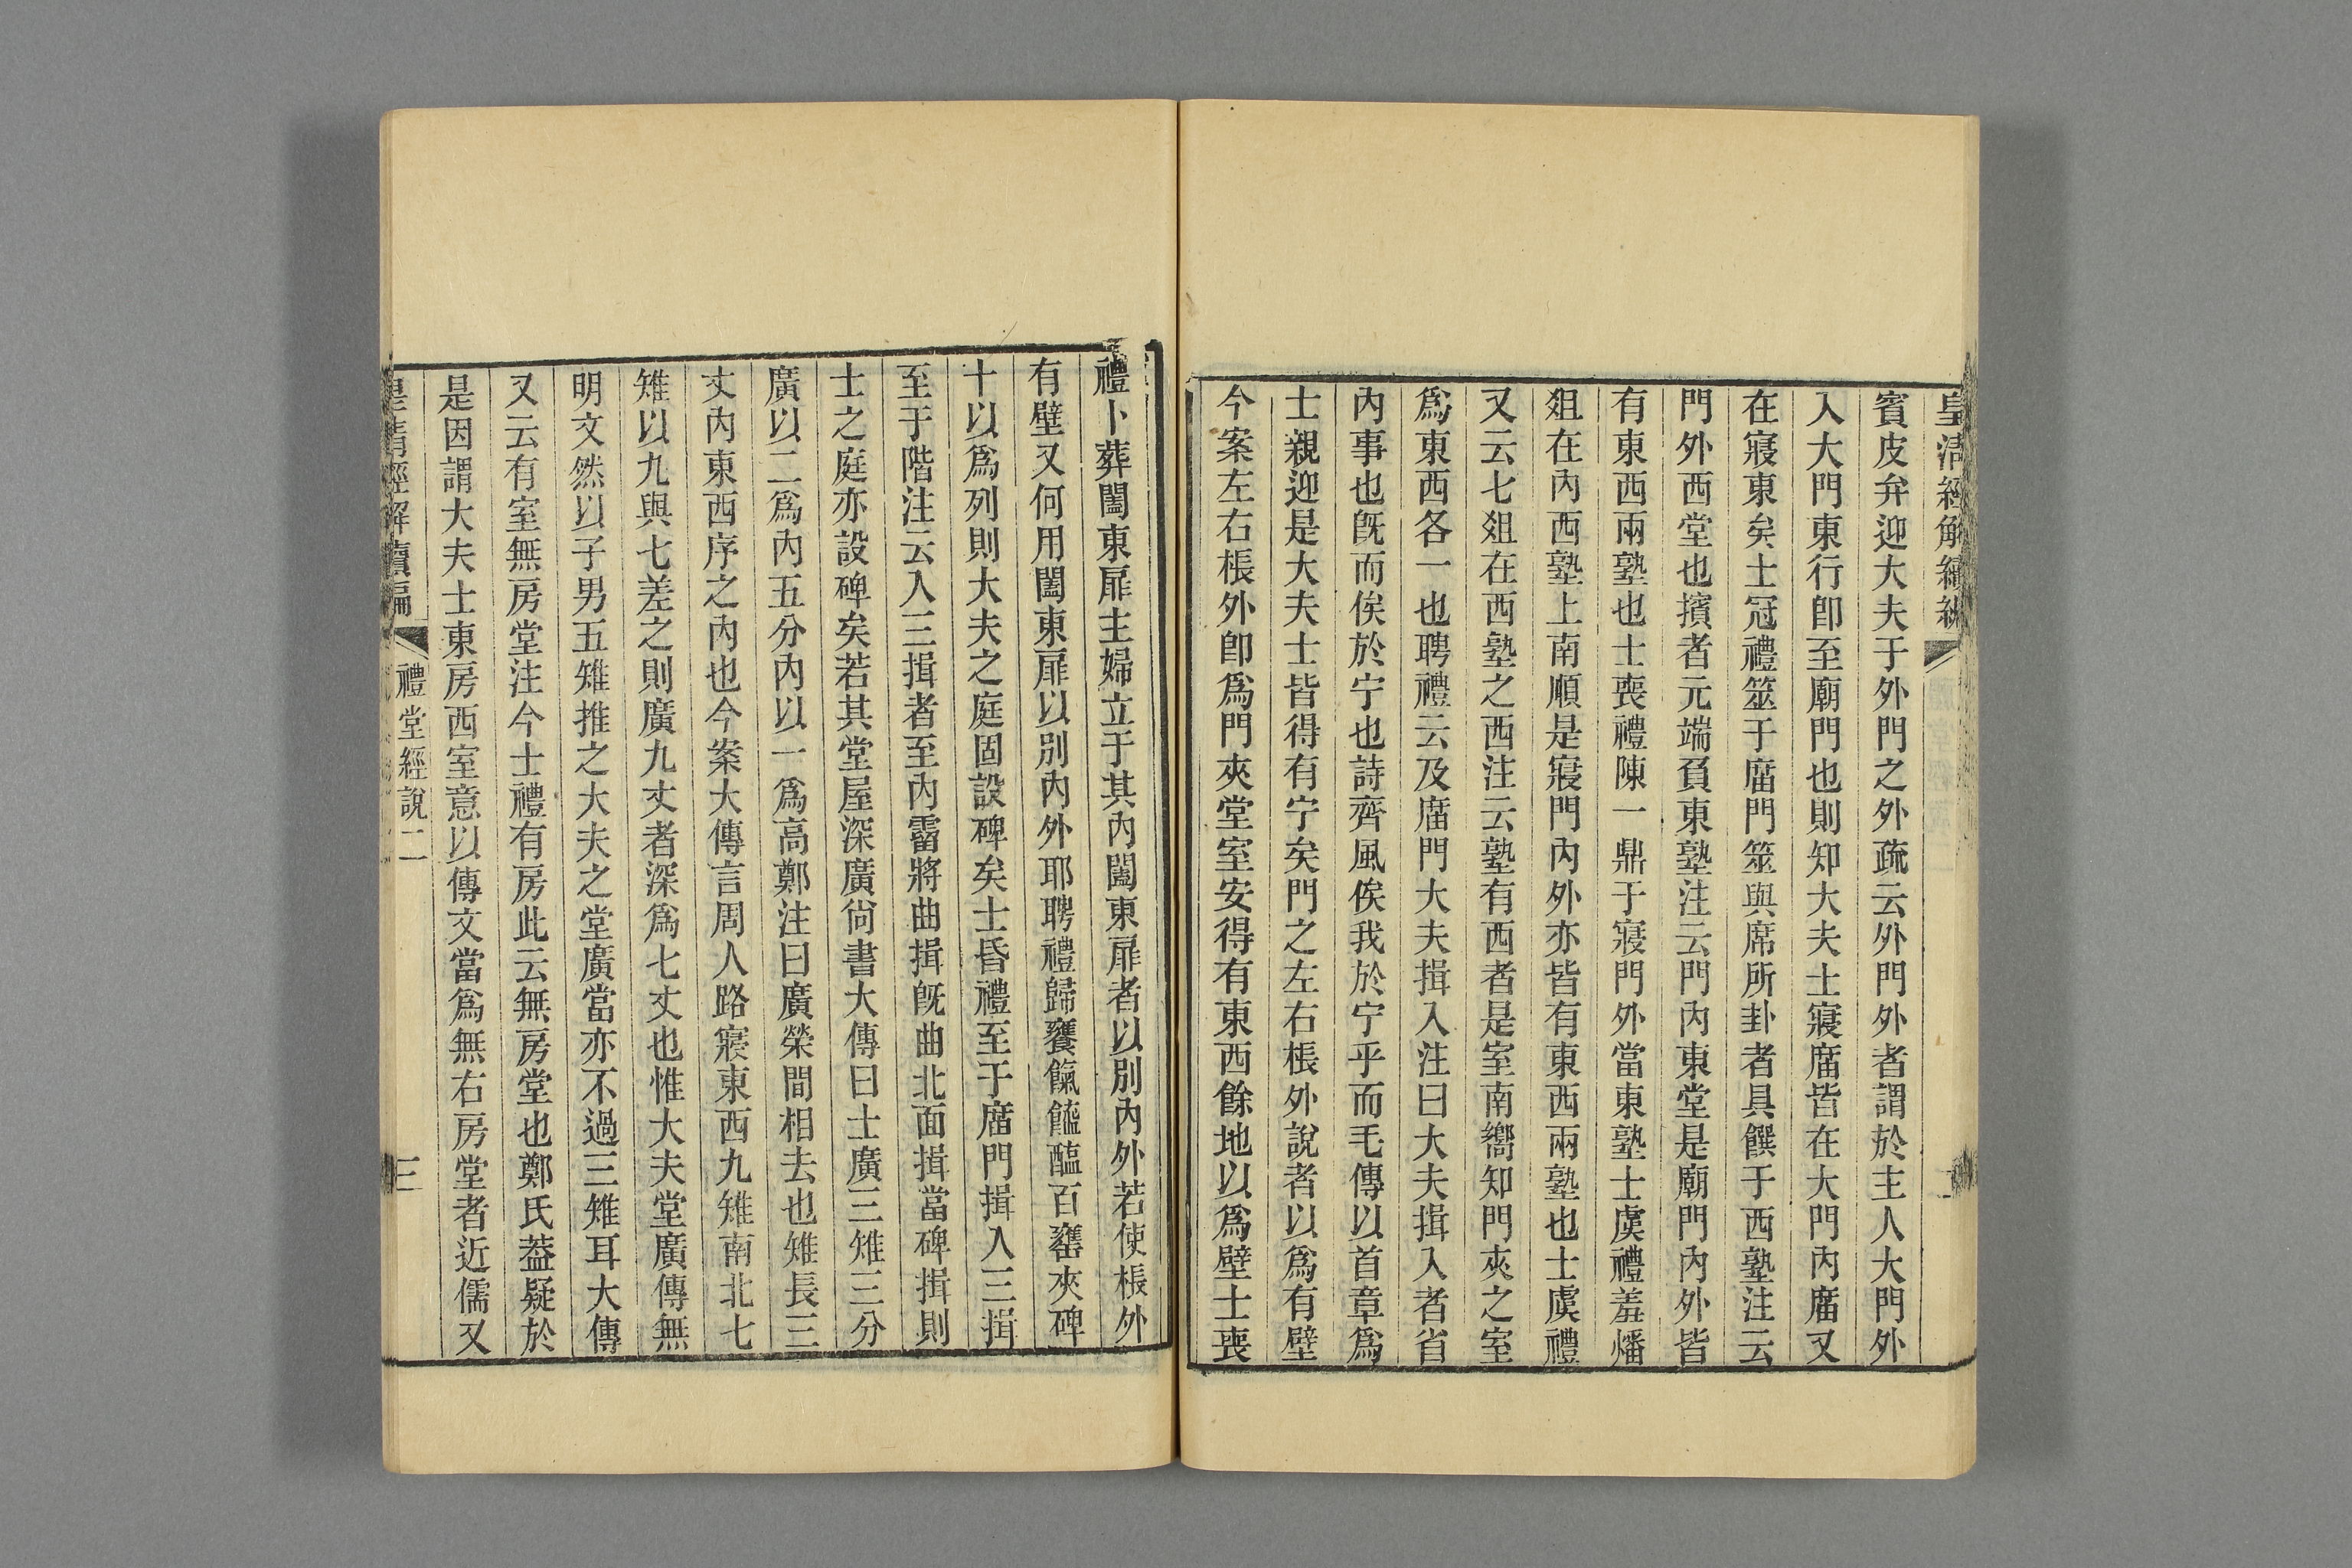 皇清經解續編
賓皮弁迎大夫于外門之外疏云外門外者謂於主人大門外
入大門東行卽至廟門也則知大夫士寢庿皆在大門內庿又
在寢東矣士冠禮筮于庿門筮與席所卦者具饌于西塾注云
門外西堂也擯者元端負東塾注云門內東堂是廟門內外皆
有東西兩塾也士喪禮陳一鼎于寢門外當東塾士虞禮羞燔
俎在內西塾上南順是寢門內外亦皆有東西兩塾也士虞禮
又云七俎在西塾之西注云塾有西者是室南嚮知門夾之室
爲東西各一也聘禮云及庿門大夫揖入注曰大夫揖入者省
內事也旣而俟於宁也詩齊風俟我於宁乎而毛傳以首章爲
士親迎是大夫士皆得有宁矣門之左右棖外說者以爲有壁
今案左右棖外卽爲門夾堂室安得有東西餘地以爲壁士喪
禮卜葬闔東扉主婦立于其內闔東扉者以別內外若使棖外
有壁又何用闔東扉以別內外耶聘禮歸饔餼醯醢百罋夾碑
十以爲列則大夫之庭固設碑矣士昏禮至于庿門揖入三揖
至于階注云入三揖者至內霤將曲揖旣曲北面揖當碑揖則
士之庭亦設碑矣若其堂屋深廣尙書大傳曰士廣三雉三分
廣以二爲內五分內以一爲高鄭注曰廣榮間相去也雉長三
丈內東西序之內也今案大傳言周人路寢東西九雉南北七
雉以九與七差之則廣九丈者深爲七丈也惟大夫堂廣傳無
明文然以子男五雉推之大夫之堂廣當亦不過三雉耳大傳
又云有室無房堂注今士禮有房此云無房堂也鄭氏葢疑於
是因謂大夫士東房西室意以傳文當爲無右房堂者近儒又
皇清經解續編 禮堂經說二 三